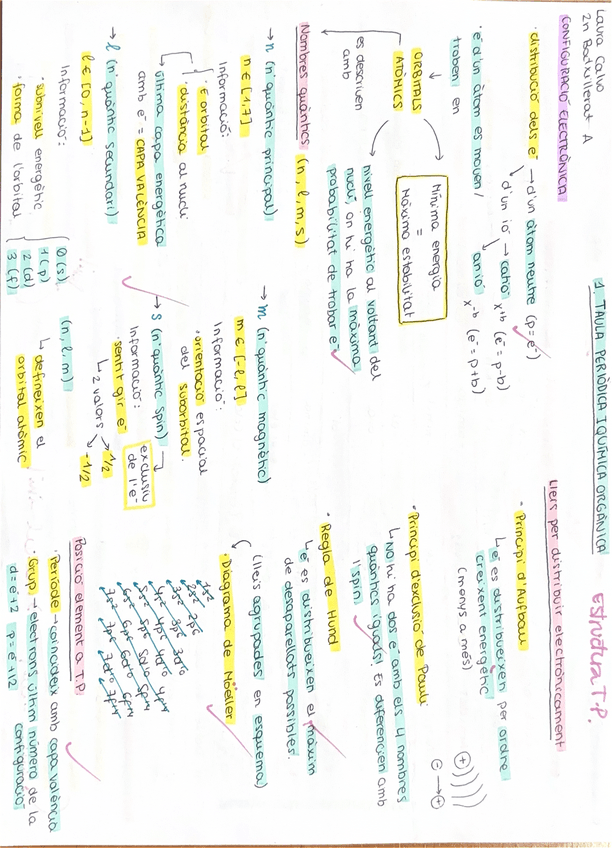 Laura Calvo
2n Batxillerat A
1. TAULA PERIÒDICA I QUÍMICA ORGÀNICA
Estructura T.P.
CONFIGURACIÓ ELECTRÒNICA
· distribució dels e⁻ → d'un àtom neutre (p=e⁻)
d'un ió → catió x⁺ᵇ (e⁻ = p-b)
anió x⁻ᵇ (e⁻ = p+b)
· e⁻ d'un àtom es mouen/
troben en
↓
ORBITALS
ATÒMICS
Mínima energia
=
Màxima estabilitat
es descriuen
amb
nivell energètic al voltant del
nucli, on hi ha la màxima
probabilitat de trobar e⁻
Nombres quàntics (n, l, m, s)
→ n (nº quàntic principal)
n ∈ [1,7]
Informació:
· E orbital
· distància al nucli
última capa energètica
amb e⁻ = CAPA VALÈNCIA
→ l (nº quàntic secundari)
l ∈ [0, n-1]
Informació:
· subnivell energètic
· forma de l'orbital
0 (s)
1 (p)
2 (d)
3 (f)
→ m (nº quàntic magnètic)
m ∈ [-l, l]
Informació:
· orientació espacial
del suborbital.
→ s (nº quàntic spin)
Informació:
· sentit gir e⁻
↳ 2 valors
1/2
-1/2
exclusiu
de l'e⁻
(n, l, m)
↳ defineixen el
orbital atòmic
Lleis per distribuir electrònicament
· Principi d'Aufbau
↳ e⁻ es distribueixen per ordre
creixent energètic
(menys a més)
· Principi d'exclusió de Pauli
↳ No hi ha dos e⁻ amb els 4 nombres
quàntics iguals, es diferencien amb
l'spin
· Regla de Hund
↳ e⁻ es distribueixen el màxim
de desaparellats possibles.
· Diagrama de Möeller
(lleis agrupades en esquema)
1s²
2s² 2p⁶
3s² 3p⁶ 3d¹⁰
4s² 4p⁶ 4d¹⁰ 4f¹⁴
5s² 5p⁶ 5d¹⁰ 5f¹⁴
6s² 6p⁶ 6d¹⁰ 6f¹⁴
7s² 7p⁶ 7d¹⁰ 7f¹⁴
Posició element a T.P.
· Període → coincideix amb capa valència
· Grup → electrons últim número de la
configuració
d = e⁻+2 p = e⁻+12